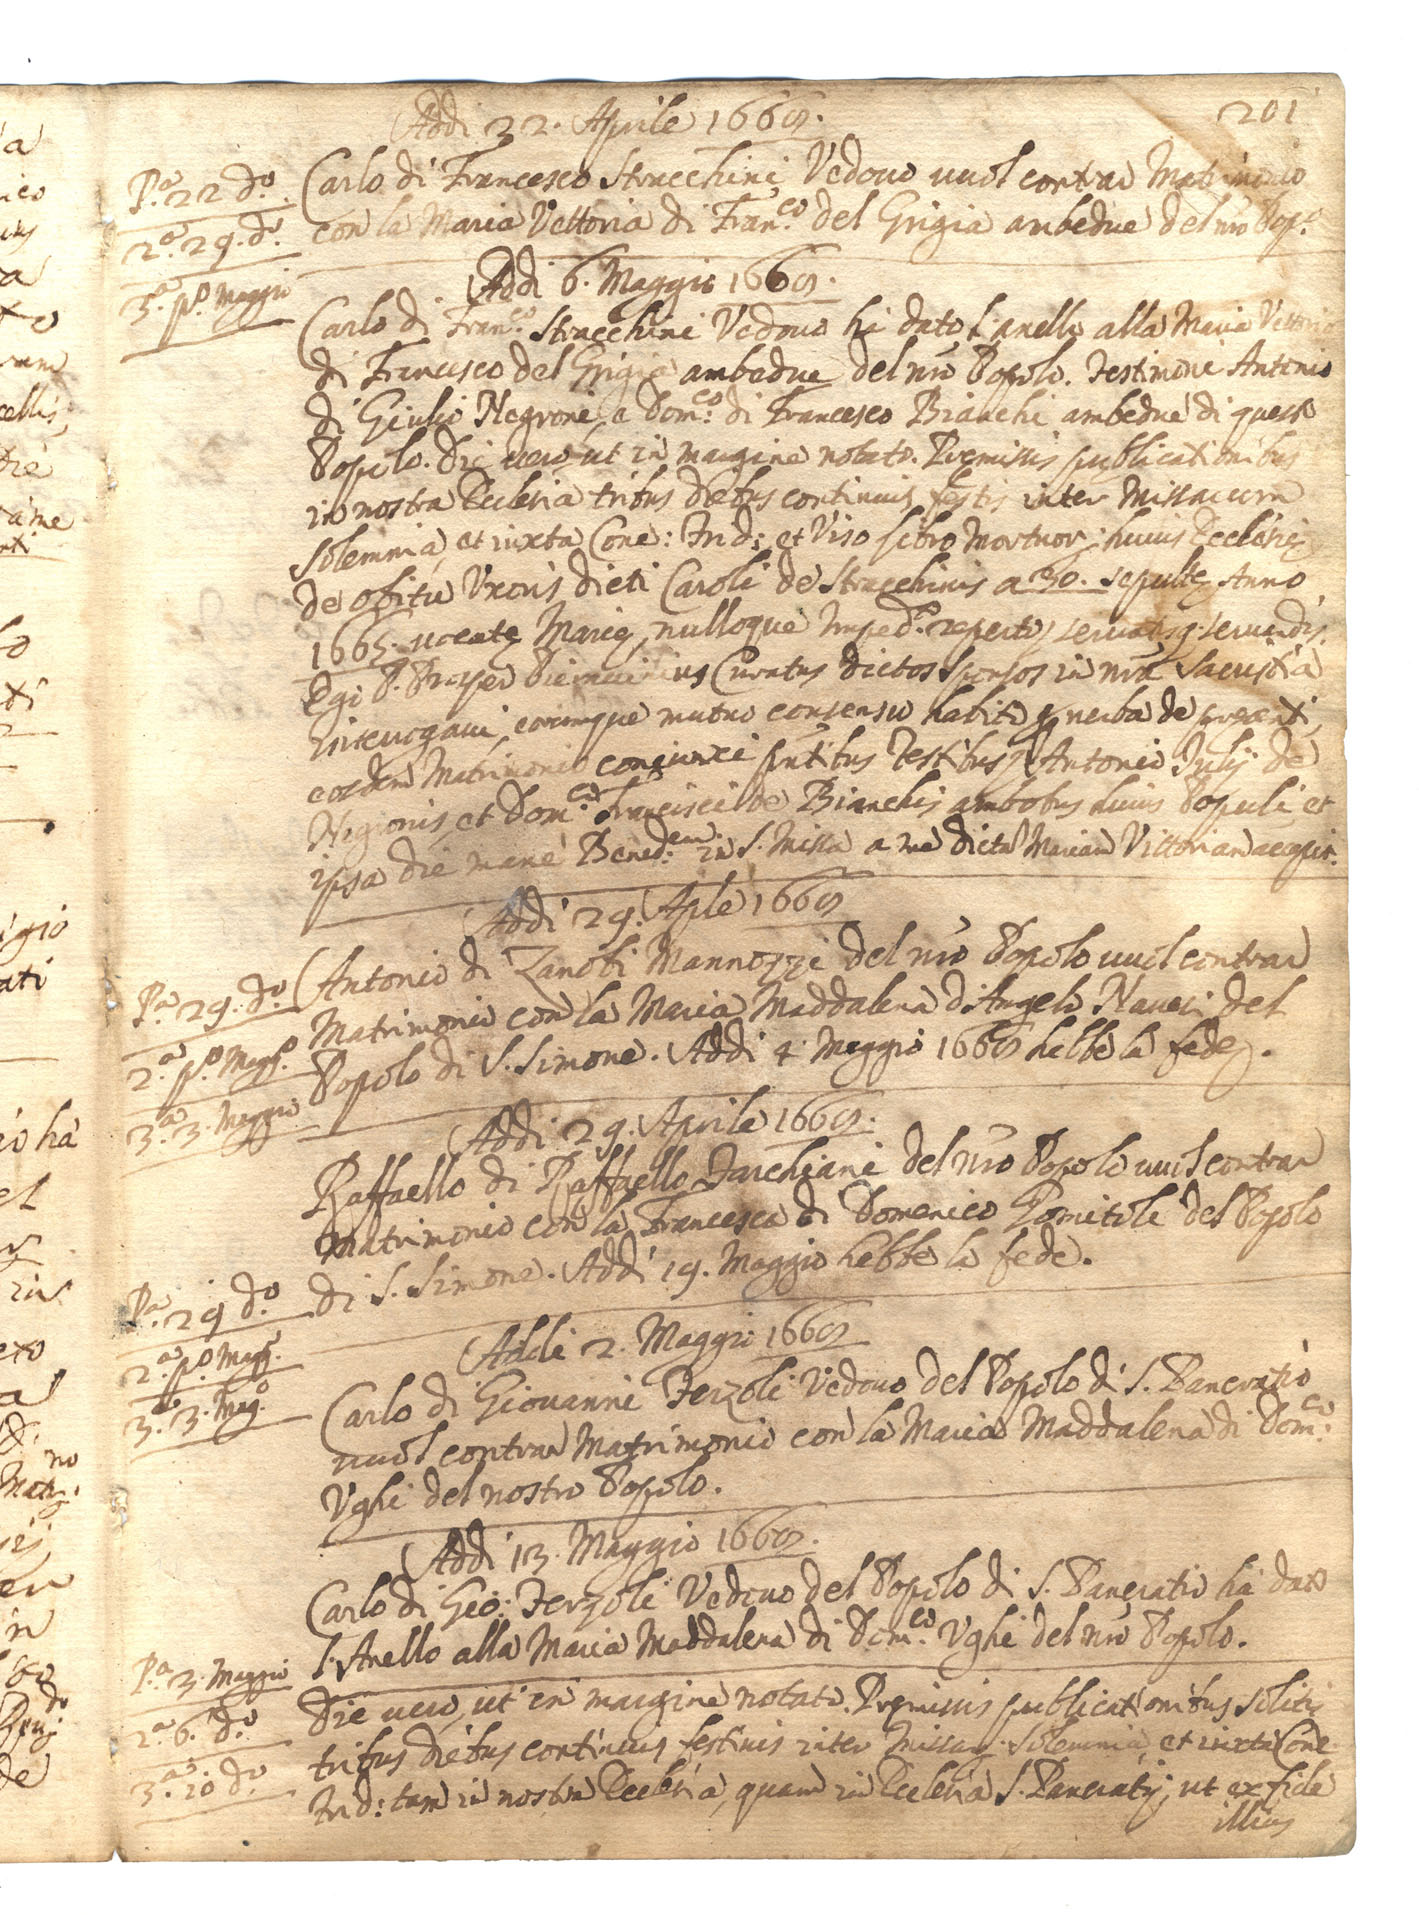 201
Addi 22. Aprile 1668.
Pa. 22 do.
Carlo di Francesco Stracchini Vedovo vuol contrar Matrimonio
2a. 29. do.
con la Maria Vettoria di Fran.co del Grigia ambedue del nro Popo.
3a. po. Maggio
Addi 6. Maggio 1668.
Carlo di Fran.co Stracchini Vedovo hà dato l'anello alla Maria Vettoria
di Francesco del Grigia ambedue del nro Popolo. Testimoni Antonio
di Giulio Negroni, e Dom.co di Francesco Bianchi ambedue di questo
Popolo. Die vero, ut in margine notato. Premissis publicationibus
in nostra Ecclesia tribus diebus continuis festis inter Missarum
solemnia, et iuxta Conc: Trid: et Viso libro Mortuor: huius Ecclesie
de obitu Uxoris dicti Caroli de Stracchinis a 30. sepulte Anno
1665. vocate Marie, nulloque Imped.o reperto, servatisq. servandis.
Ego P. Curatus dictos Sponsos in nra Sacristia
interrogavi, eorumque mutuo consensu habito p verba de presenti
eosdem Matrimonio coniunxi pntibus Testibus Antonio Julij de
Negronis, et Dom.co Francisci de Bianchis ambobus huius Populi, et
ipsa die mane Bened.em in S. Missa a me dicta Maria Vittoria accepit.
Addi 29. Aple 1668
Pa. 29. do.
Antonio di Zanobi Mannozzi del nro Popolo vuol contrar
Matrimonio con la Maria Maddalena d'Angelo Naveri del
2a. po. Magg.o
Popolo di S. Simone. Addi 4. Maggio 1668 hebbe la fede.
3a. 3. Maggio
Addi 29. Aprile 1668.
Raffaello di Raffaello Tarchiani del nro Popolo vuol contrar
Matrimonio con la Francesca di Domenico Gomitoli del Popolo
Pa. 29 do.
di S. Simone. Addi 19. Maggio hebbe la fede.
2a. po. Magg.
Addi 2. Maggio 1668
3a. 3. Mag.o
Carlo di Giovanni Terzoli Vedovo del Popolo di S. Pancratio
vuol contrar Matrimonio con la Maria Maddalena di Dom.co
Ughi del nostro Popolo.
Addi 13. Maggio 1668.
Carlo di Gio: Terzoli Vedovo del Popolo di S. Pancratio hà dato
l'Anello alla Maria Maddalena di Dom.co Ughi del nro Popolo.
Pa. 3. Maggio
Die vero, ut in margine notato. Premissis publicationibus solitis
2a. 6. do.
tribus diebus continuis festivis inter Missar. solemnia, et iuxta Conc.
3a. 10 do.
Trid: tam in nostra Ecclesia, quam in Ecclesia S. Pancratij, ut ex fide
illius